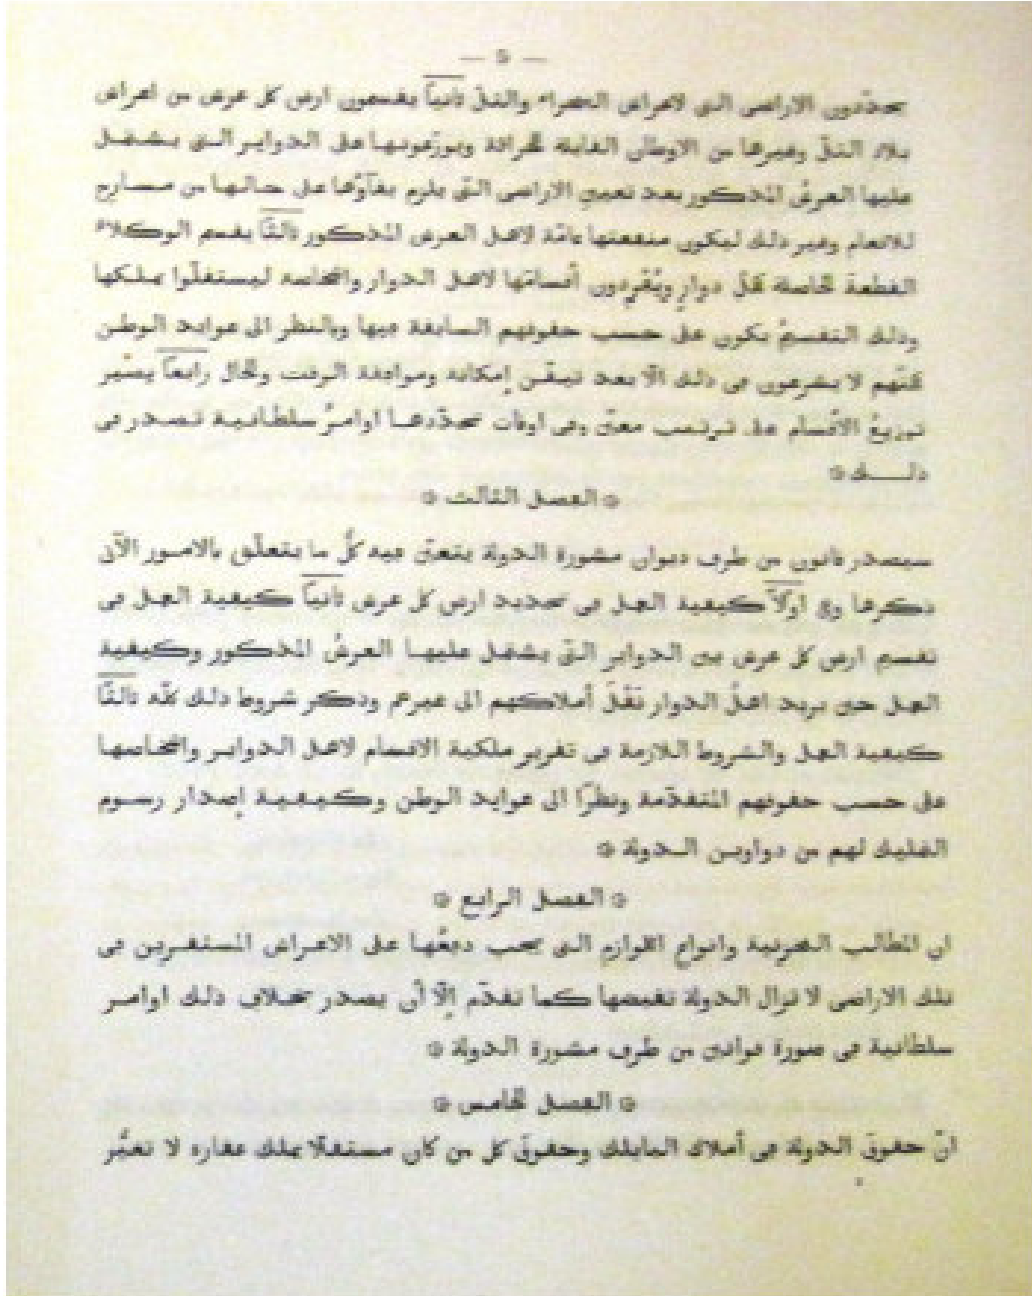 — ٩ —
يحدّدون الاراضى التى لاعراش الصحراء والتلّ ثانياً يقسمون ارض كل عرش من اعراش
بلاد التلّ وغيرها من الاوطان القابلة للحراثة ويوزّعونها على الدواير التى يشتمل
عليها العرشُ المذكور بعد تعيين الاراضى التى يلزم بقاؤها على حالها من مسارح
للانعام وغير ذلك ليكون منفعتها عامّة لاهل العرش المذكور ثالثاً يقسم الوكلاء
القطعة الحاصلة لكلّ دوارٍ ويُفْرِدون أقسامَها لاهل الدوار واشخاصه ليستقلّوا بملكها
وذلك التقسيمُ يكون على حسب حقوقهم السابقة فيها وبالنظر الى عوايد الوطن
لكنّهم لا يشرعون فى ذلك الّا بعد تيقّن إمكانه وموافقة الوقت والحال رابعاً يصير
توزيعُ الاقسام على ترتيب معيّن وفى اوقات تحدّدها اوامرُ سلطانية تصدر فى
ذلــك ۞
۞ الفصل الثالث ۞
سيصدر قانون من طرف ديوان مشورة الدولة يتعيّن فيه كلُّ ما يتعلّق بالامور الآتى
ذكرها وهى اوّلاً كيفية العمل فى تحديد ارض كل عرش ثانياً كيفية العمل فى
تقسيم ارض كل عرش بين الدواير التى يشتمل عليها العرشُ المذكور وكيفية
العمل حين يريد اهلُ الدوار نَقْلَ أملاكهم الى غيرهم وذكر شروط ذلك كله ثالثاً
كيفية العمل والشروط اللازمة فى تقرير ملكية الاقسام لاهل الدواير واشخاصها
على حسب حقوقهم المتقدّمة ونظرًا الى عوايد الوطن وكيفية إصدار رسوم
التمليك لهم من دواوين الدولة ۞
۞ الفصل الرابع ۞
ان المطالب المخزنية وانواع اللوازم التى يجب دفعُها على الاعراش المستقرين فى
تلك الاراضى لا تزال الدولة تقبضها كما تقدّم إلّا أن يصدر بخلاف ذلك اوامر
سلطانية فى صورة قوانين من طرف مشورة الدولة ۞
۞ الفصل الخامس ۞
انّ حقوق الدولة فى أملاك البايلك وحقوق كل من كان مستقلّا بملك عقاره لا تغيَّر